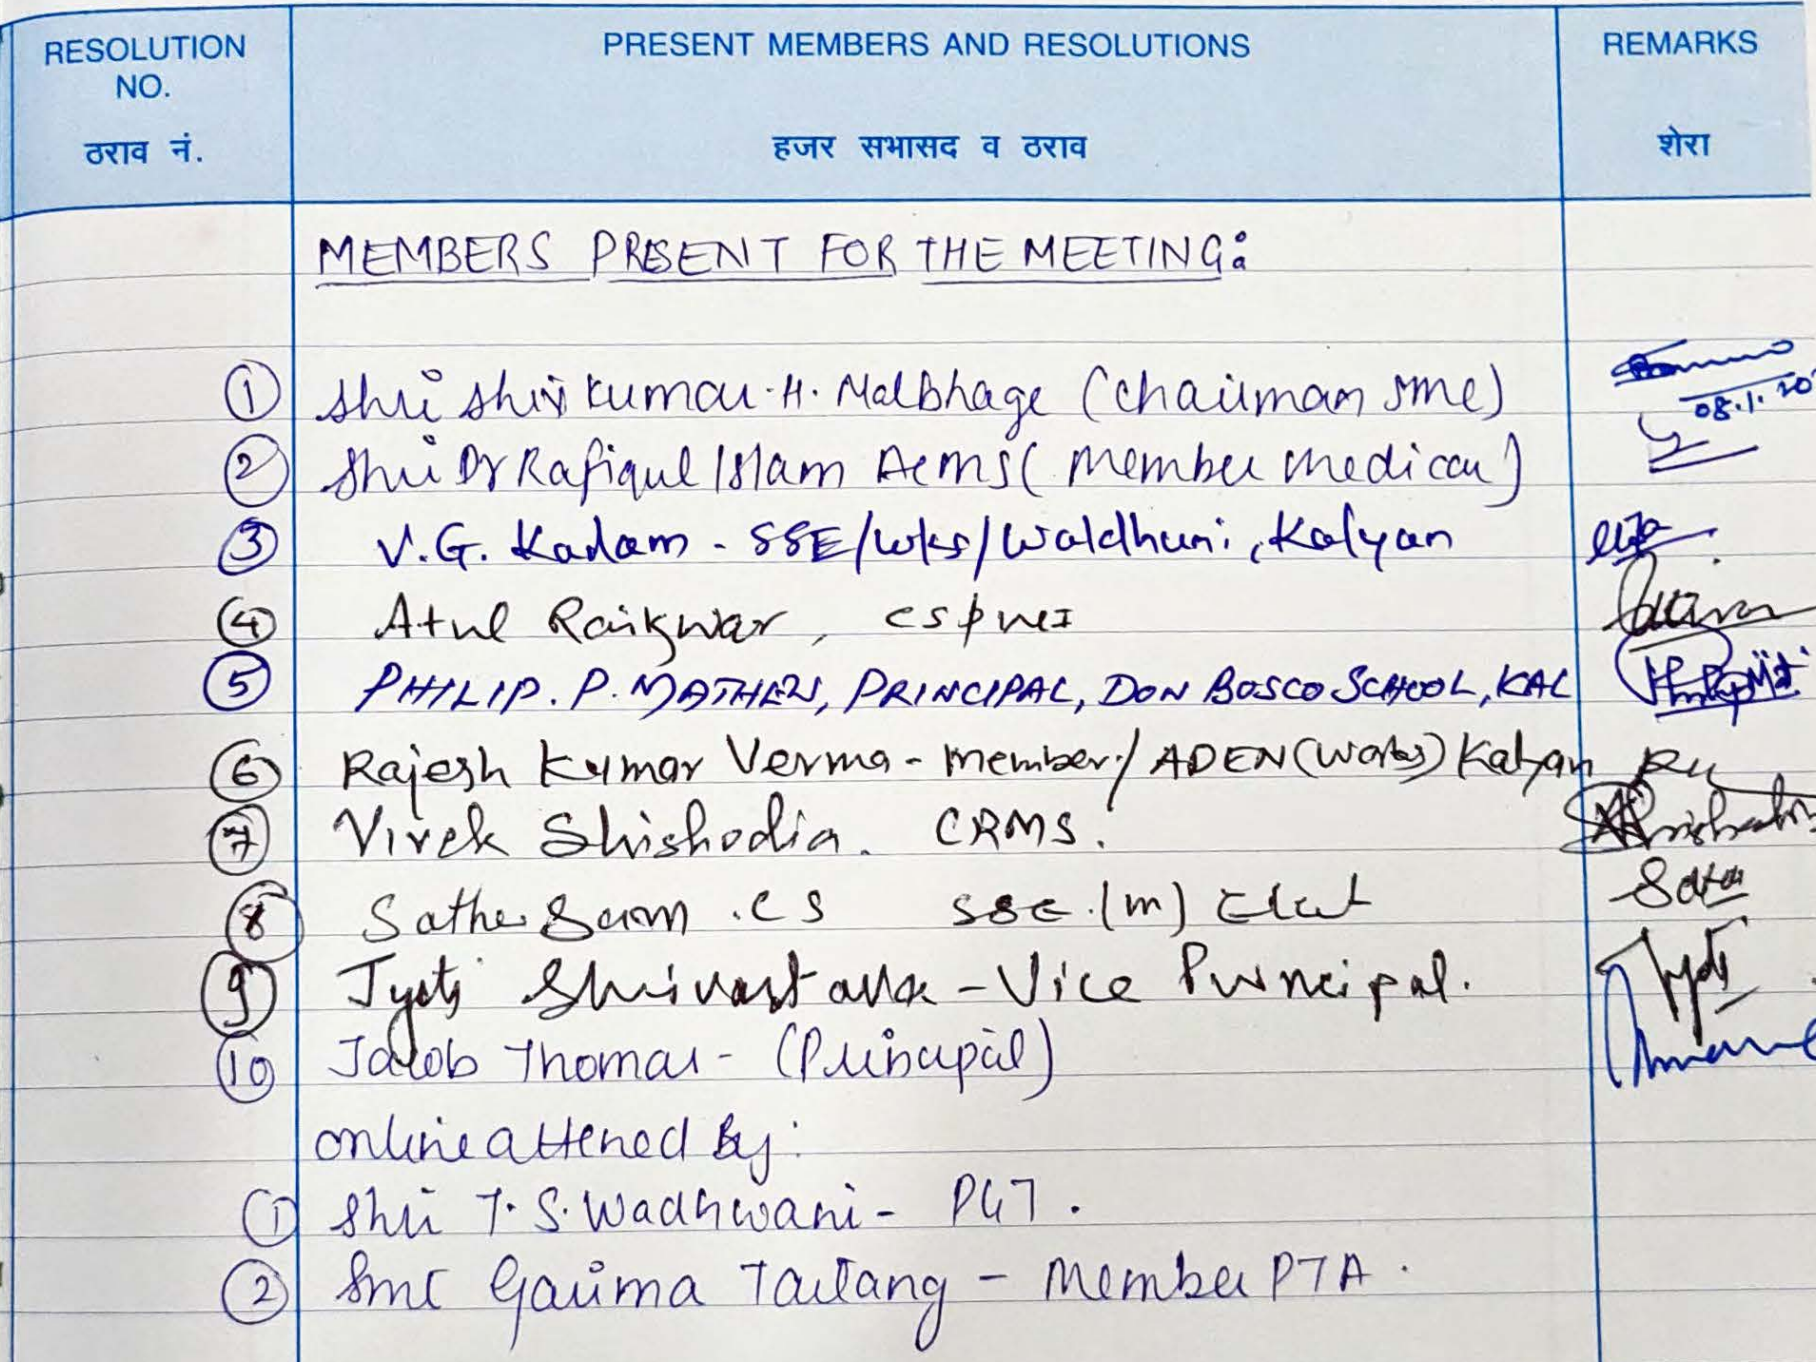 RESOLUTION NO. PRESENT MEMBERS AND RESOLUTIONS REMARKS
ठराव नं. हजर सभासद व ठराव शेरा
MEMBERS PRESENT FOR THE MEETING:
1 Shri Shiv Kumar.H. Malbhage (Chairman SMC)
08.1.20
2 Shri Dr Rafiqul Islam ACMS (Member Medical)
3 V.G. Kadam - SSE/Wks/Waldhuni, Kalyan
4 Atul Raikwar,
5 PHILIP. P. MATHEW, PRINCIPAL, DON BOSCO SCHOOL, KAL
6 Rajesh Kumar Verma - Member/ADEN(Works) Kalyan
7 Vivek Shishodia. CRMS.
8 Sathe .CS SSE.(M)
9 Jyoti Shrivastava - Vice Principal. Jyoti
10 Jacob Thomas - (Principal)
Online attened By:
1 Shri T.S. Wadhwani - PGT.
2 Smt Garima Tailang - Member PTA.